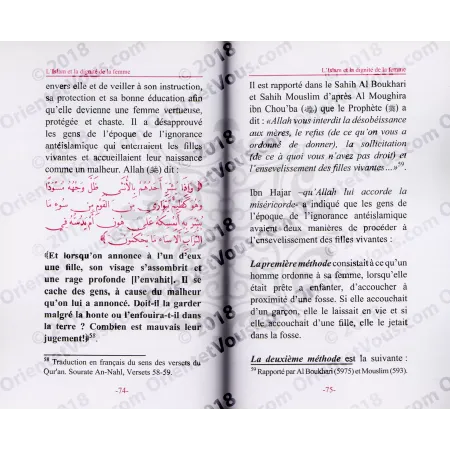 L'Islam et la dignité de la femme
envers elle et de veiller à son instruction,
sa protection et sa bonne éducation afin
qu'elle devienne une femme vertueuse,
protégée et chaste. Il a désapprouvé
les gens de l'époque de l'ignorance
antéislamique qui enterraient les filles
vivantes et accueillaient leur naissance
comme un malheur. Allah (ﷻ) dit :
﴿وَإِذَا بُشِّرَ أَحَدُهُم بِالْأُنثَىٰ ظَلَّ وَجْهُهُ مُسْوَدًّا
وَهُوَ كَظِيمٌ يَتَوَارَىٰ مِنَ الْقَوْمِ مِن سُوءِ مَا
بُشِّرَ بِهِ أَيُمْسِكُهُ عَلَىٰ هُونٍ أَمْ يَدُسُّهُ فِي
التُّرَابِ أَلَا سَاءَ مَا يَحْكُمُونَ﴾
«Et lorsqu'on annonce à l'un d'eux
une fille, son visage s'assombrit et
une rage profonde [l'envahit]. Il se
cache des gens, à cause du malheur
qu'on lui a annoncé. Doit-il la garder
malgré la honte ou l'enfouira-t-il dans
la terre ? Combien est mauvais leur
jugement!»⁵⁸
⁵⁸ Traduction en français du sens des versets du
Qur'an. Sourate An-Nahl, Versets 58-59.
-74-
L'Islam et la dignité de la femme
Il est rapporté dans le Sahih Al Boukhari
et Sahih Mouslim d'après Al Moughira
ibn Chou'ba (﷜) que le Prophète (ﷺ) a
dit : «Allah vous interdit la désobéissance
aux mères, le refus (de ce qu'on vous a
ordonné de donner), la sollicitation
(de ce à quoi vous n'avez pas droit) et
l'ensevelissement des filles vivantes…»⁵⁹
Ibn Hajar -qu'Allah lui accorde la
miséricorde- a indiqué que les gens de
l'époque de l'ignorance antéislamique
avaient deux manières de procéder à
l'ensevelissement des filles vivantes :
La première méthode consistait à ce qu'un
homme ordonne à sa femme, lorsqu'elle
était prête a enfanter, d'accoucher à
proximité d'une fosse. Si elle accouchait
d'un garçon, elle le laissait en vie et si
elle accouchait d'une fille, elle le jetait
dans la fosse.
La deuxième méthode est la suivante :
⁵⁹ Rapporté par Al Boukhari (5975) et Mouslim (593).
-75-
© 2018
OrientetVous.com